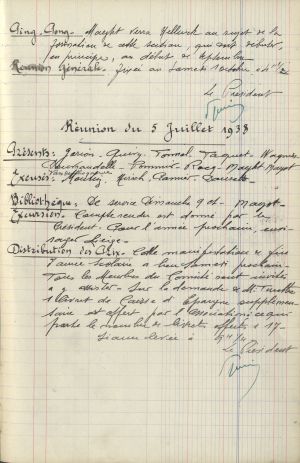 Ping-Pong. Mayht verra Hellerich au sujet de la
formation de cette section, qui doit débuter,
en principe, au début de septembre
Réunion Générale. Fixée au Samedi 1 octobre à
Le Président
Réunion du 5 Juillet 1938
Présents: Jarion, Quirin, Tonnel, Taquet - Wagner
Pommier - Rocq - Mayht - Mayot
Excusés:
Bibliothèque: De service Dimanche 9 ct. - Mayot -
Excursion. Compte rendu est donné par le
Président. Pour l'année prochaine, envi-
sager Liège -
Distribution des Prix. Cette manifestation de fin
d'année scolaire a lieu samedi prochain.
Tous les Membres du Comité sont invités
à y assister - Sur la demande de M.
1 livret de Caisse d'Epargne supplémen-
taire est offert par l'Association; ce qui
porte le nombre de livrets offerts à 17 -
Séance levée à
Le Président